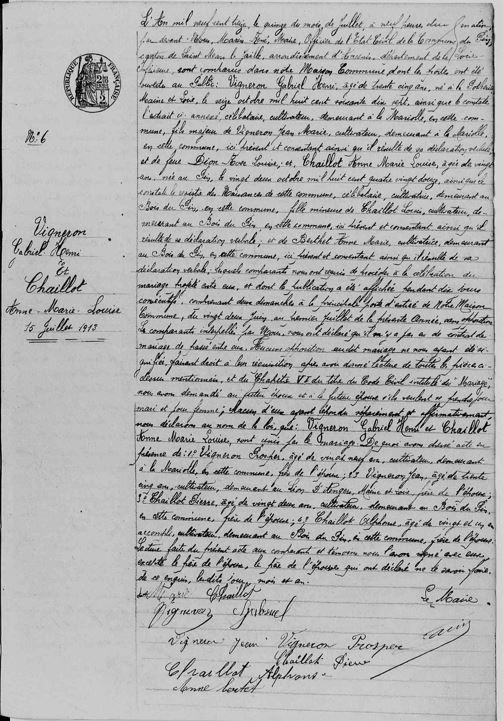 RÉPUBLIQUE FRANÇAISE
N° 6
Vigneron
Gabriel Henri
Et
Chaillot
Anne-Marie-Louise
15 Juillet 1913
L'An mil neuf cent treize, le quinze du mois, de Juillet, à neuf heures, du matin
par devant Nous, Marin René, Marie, Officier de l'Etat Civil de la Commune du Pin,
canton de Saint Mars la Jaille, arrondissement d'Ancenis, département de la Loire
Inférieure, sont comparus dans notre Maison Commune dont les portes ont été
ouvertes au Public: Vigneron Gabriel Henri, âgé de trente cinq ans, né à
Maine et Loire, le seize octobre mil huit cent soixante dix sept, ainsi que le constate
l'extrait célibataire, cultivateur, demeurant à la Mariolle, en cette com-
mune, fils majeur de Vigneron Jean Marie, cultivateur, demeurant à la Mariolle,
en cette commune, ici présent et consentant ainsi qu'il résulte de sa déclaration verbale
et de feue Dion Louise; et, Chaillot Anne Marie Louise, âgée de vingt
ans, née au Pin, le vingt deux octobre mil huit cent quatre vingt douze, ainsi que le
constate le registre de Naissances de cette commune, célibataire, cultivatrice, demeurant au
Bois du Pin, en cette commune, fille mineure de Chaillot Louis, cultivateur, de-
meurant au Bois du Pin, en cette commune, ici présent et consentant ainsi qu'il
résulte de sa déclaration verbale; et de Berthet Anne Marie, cultivatrice, demeurant
au Bois du Pin, en cette commune, ici présente et consentante ainsi qu'il résulte de sa
déclaration verbale, lesquels comparants nous ont requis de procéder à la célébration du
mariage projeté entre eux, et dont la publication a été affichée pendant dix jours
consécutifs, comprenant deux dimanches à la principale porte d'entrée de Notre Maison
Commune, du vingt deux Juin, au premier Juillet de la présente Année, sans opposition
Les comparants interpellés par Nous, nous ont déclaré qu'il n'y a pas eu de contrat de
mariage de passé entre eux. Aucune opposition audit mariage ne nous ayant été si-
gnifiée, faisant droit à leur réquisition après avoir donné lecture de toutes les pièces ci-
dessus mentionnées, et du Chapitre VI du titre du Code Civil intitulé du Mariage,
nous avons demandé au futur époux et à la future épouse s'ils veulent se prendre pour
mari et pour femme; chacun d'eux ayant répondu séparément et affirmativement,
nous déclarons au nom de la loi, que: Vigneron Gabriel Henri et Chaillot
Anne Marie Louise, sont unis par le mariage. De quoi avons dressé acte en
présence de: 1° Vigneron Prosper, âgé de vingt neuf ans, cultivateur, demeurant
à la Mariolle, en cette commune, frère de l'époux; 2° Vigneron Jean, âgé de trente
cinq ans, cultivateur, demeurant au Lion d'Angers, Maine et Loire, frère de l'époux;
3° Chaillot Pierre, âgé de vingt deux ans, cultivateur, demeurant au Bois du Pin
en cette commune, frère de l'épouse; 4° Chaillot Alphons, âgé de vingt et un ans
accomplis, cultivateur, demeurant au Bois du Pin, en cette commune, frère de l'épouse
Lecture faite du présent acte aux comparants et témoins nous l'avons signé avec eux,
excepté le père de l'époux, le père de l'épouse qui ont déclaré ne le savoir faire,
de ce enquis, lesdits jour, mois et an.
Chaillot Le Maire
Vigneron Gabriel
Vigneron Jean Vigneron Prosper
Chaillot Pierre
Chaillot Alphons
Anne Bertet